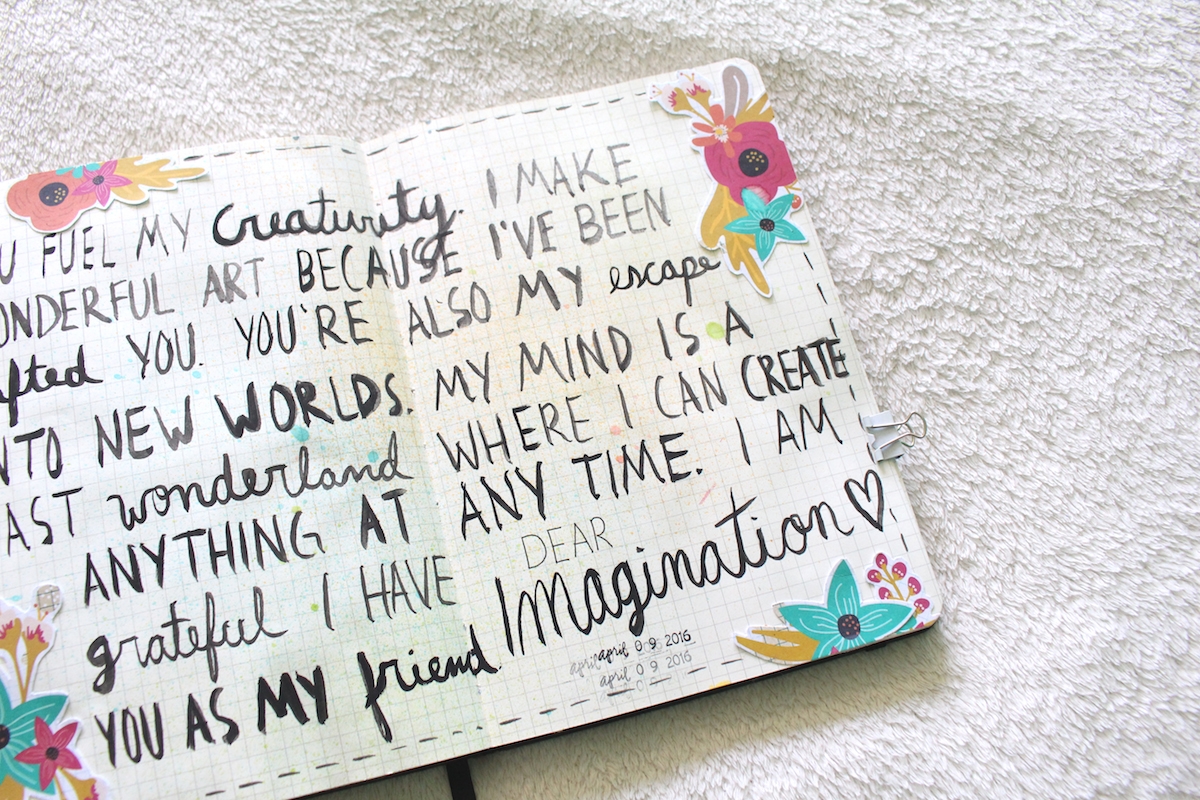 U FUEL MY Creativity. I MAKE
ONDERFUL ART BECAUSE I'VE BEEN
ifted YOU. YOU'RE ALSO MY escape
NTO NEW WORLDS. MY MIND IS A
AST wonderland WHERE I CAN CREATE
ANYTHING AT ANY TIME. I AM
grateful I HAVE
YOU AS MY friend
DEAR
Imagination♡
april april 0 9 2016
april 0 9 2016